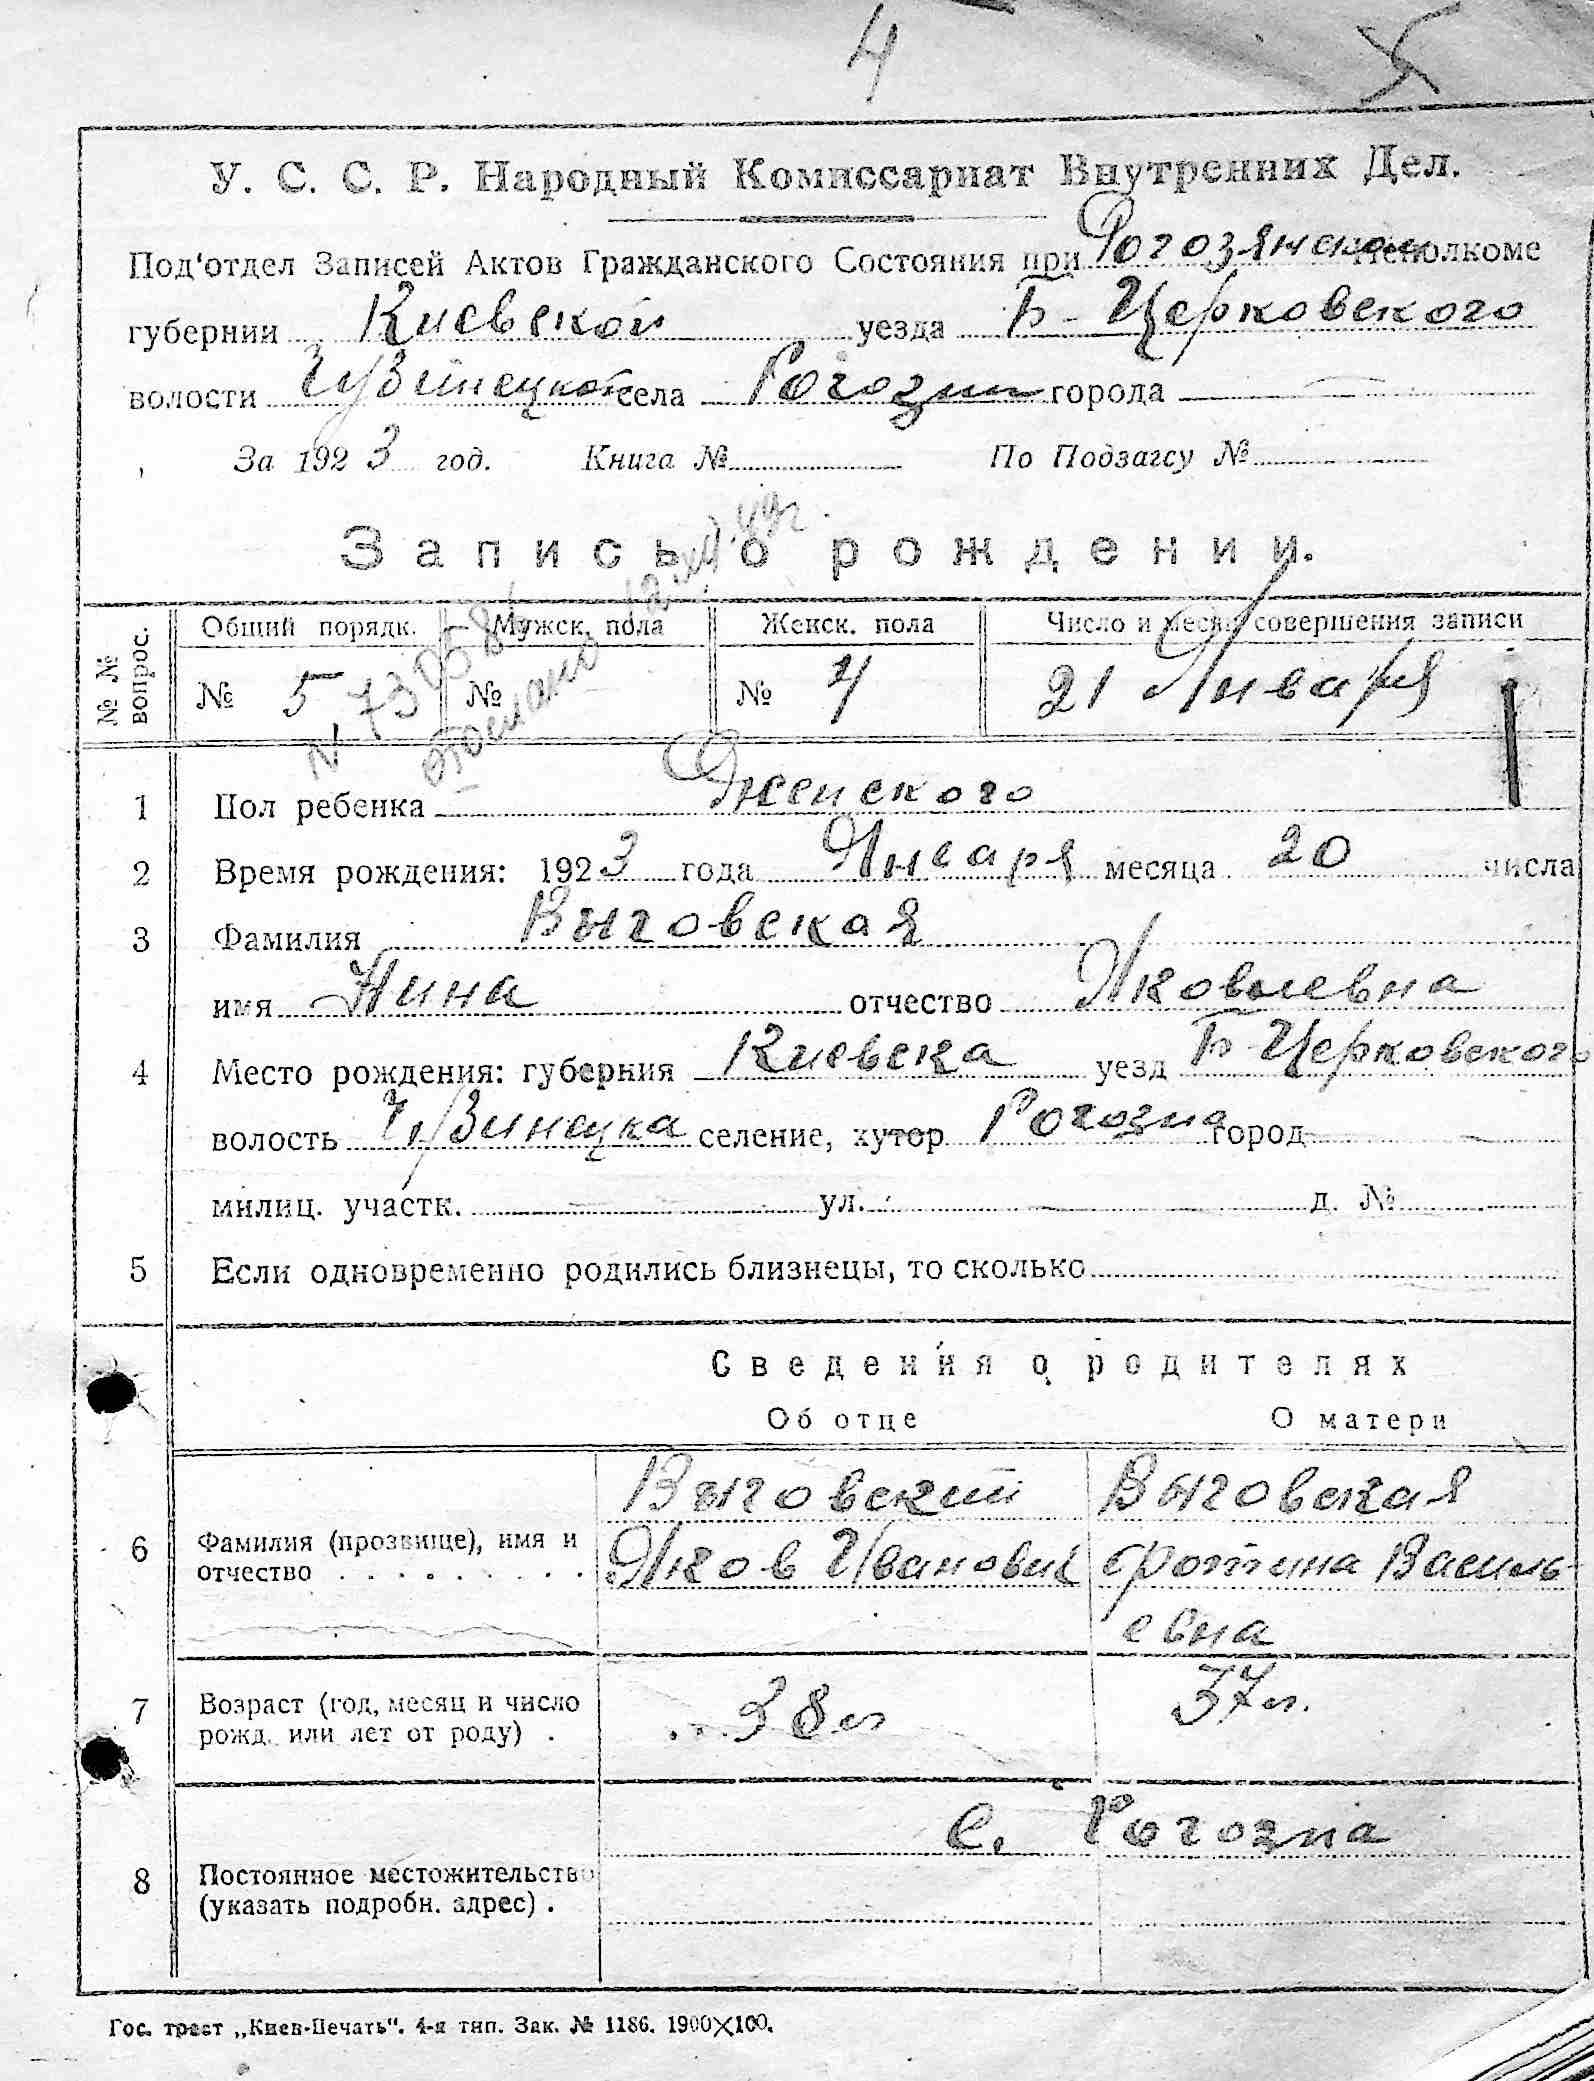 4
У. С. С. Р. Народный Комиссариат Внутренних Дел.
Под'отдел Записей Актов Гражданского Состояния при Рогозянском Исполкоме
губернии Киевской уезда Б-Церковского
волости села Рогозни города
За 1923 год. Книга № По Подзагсу №
Запись о рождении.
№ № вопрос. Общий порядк. Мужск. пола Женск. пола Число и месяц совершения записи
№ 5 № № 4 21 Января
1 Пол ребенка Женского
2 Время рождения: 1923 года Января месяца 20 числа
3 Фамилия Выговская
имя Нина отчество Яковлевна
4 Место рождения: губерния Киевска уезд Б-Церковского
волость селение, хутор Рогозна город
милиц. участк. ул. д. №
5 Если одновременно родились близнецы, то сколько
Сведения о родителях
Об отце О матери
Выговский Выговская
6 Фамилия (прозвище), имя и отчество Яков Иванович Фотина Василь-
евна
7 Возраст (год, месяц и число рожд. или лет от роду) 38 л 37 л.
с. Рогозна
8 Постоянное местожительство
(указать подробн. адрес)
Гос. трест „Киев-Печать“. 4-я тип. Зак. № 1186. 1900×100.